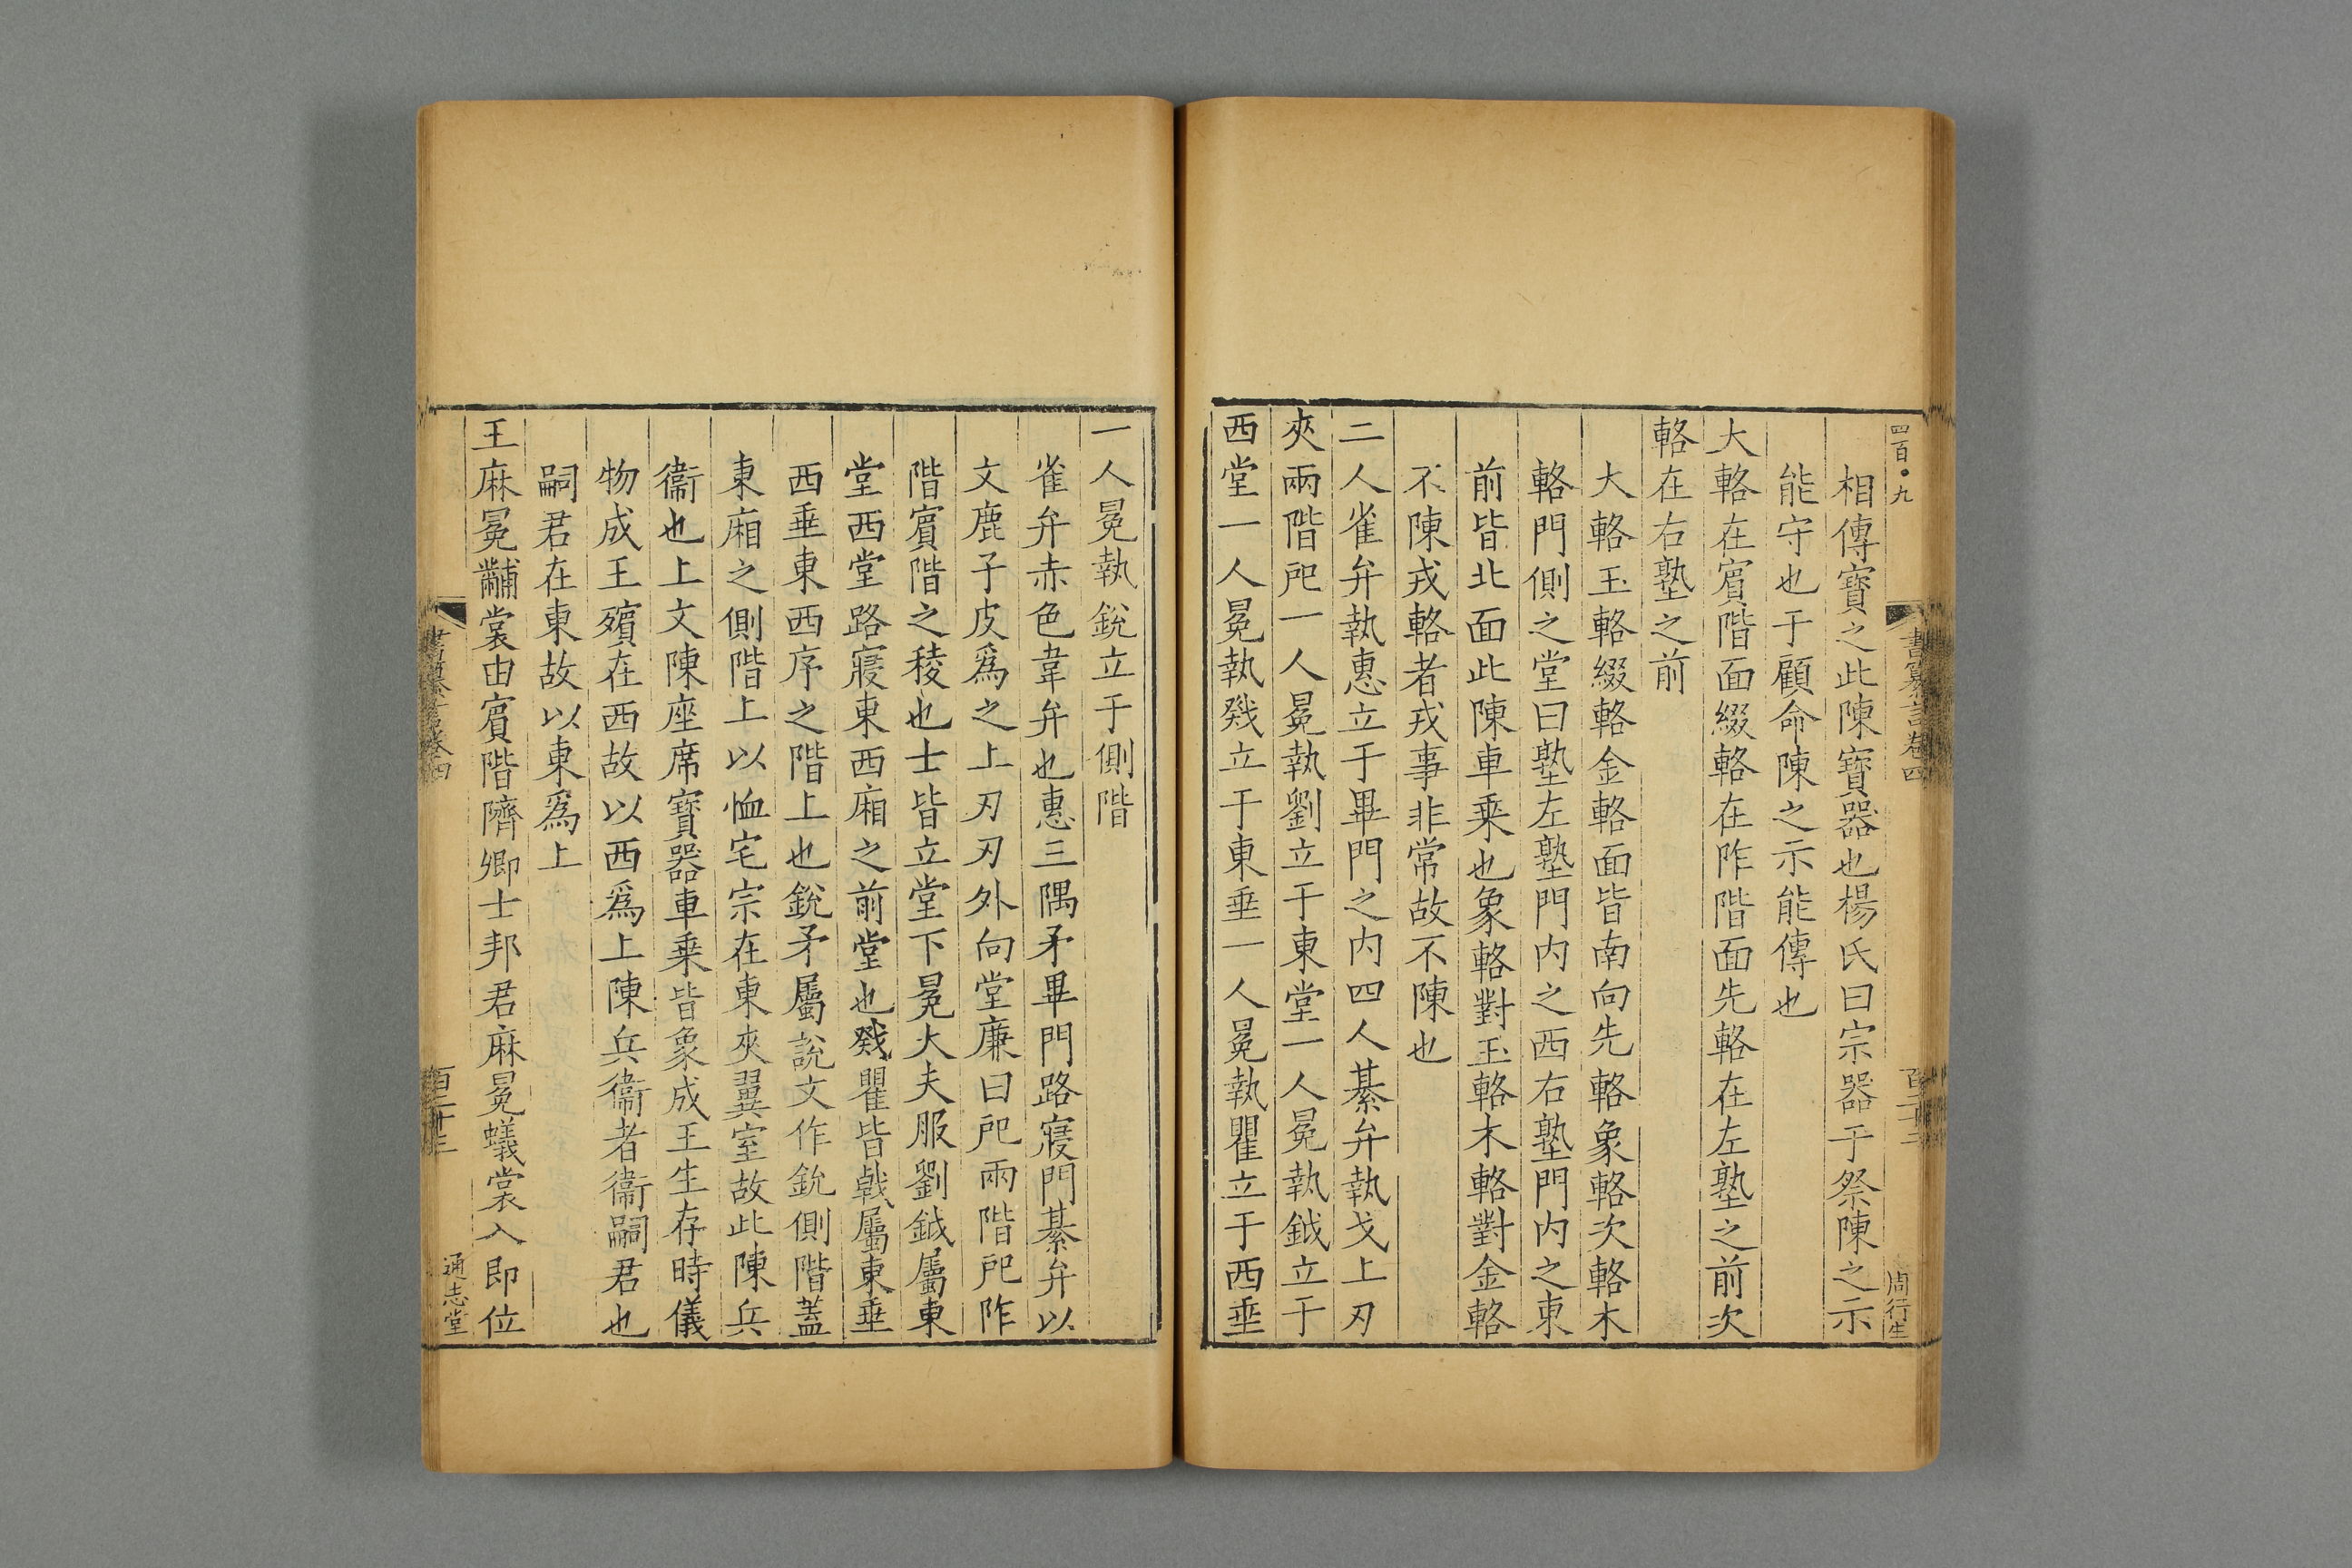 四百〇九
書纂言卷四
周行生
相傳寶之此陳寶器也楊氏曰宗器于祭陳之示
能守也于顧命陳之示能傳也
大輅在賓階面綴輅在阼階面先輅在左塾之前次
輅在右塾之前
大輅玉輅綴輅金輅面皆南向先輅象輅次輅木
輅門側之堂曰塾左塾門内之西右塾門内之東
前皆北面此陳車乗也象輅對玉輅木輅對金輅
不陳戎輅者戎事非常故不陳也
二人雀弁執惠立于畢門之内四人綦弁執戈上刃
夾兩階戺一人冕執劉立于東堂一人冕執鉞立于
西堂一人冕執戣立于東垂一人冕執瞿立于西垂
一人冕執銳立于側階
雀弁赤色韋弁也惠三隅矛畢門路寢門綦弁以
文鹿子皮爲之上刃刃外向堂廉曰戺兩階戺阼
階賓階之稜也士皆立堂下冕大夫服劉鉞屬東
堂西堂路寢東西廂之前堂也戣瞿皆戟屬東垂
西垂東西序之階上也銳矛屬說文作鈗側階蓋
東廂之側階上以恤宅宗在東夾翼室故此陳兵
衞也上文陳座席寶器車乗皆象成王生存時儀
物成王殯在西故以西爲上陳兵衞者衞嗣君也
嗣君在東故以東爲上
王麻冕黼裳由賓階隮卿士邦君麻冕蟻裳入即位
通志堂